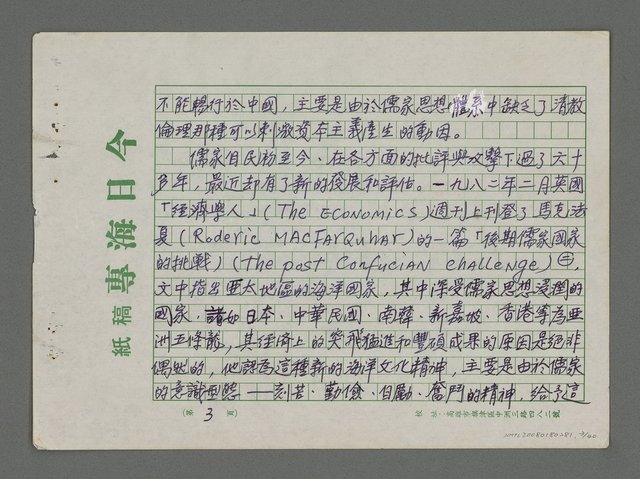 不能暢行於中國，主要是由於儒家思想體系中缺乏了清教
倫理那種可以刺激資本主義產生的動因。
儒家自民初至今、在各方面的批評與攻擊下過了六十
多年，最近却有了新的發展和評估。一九八二年二月英國
「經濟學人」(The ECONOMICS)週刊上刊登了馬克法
夏(Roderic MACFARQuhAr)的一篇「後期儒家國家
的挑戰」(The post ConfuciAN chAllenge)㊁，
文中指出亞太地區的海洋國家，其中深受儒家思想浸潤的
國家、諸如日本、中華民國、南韓、新嘉坡、香港等為亞
洲五條龍，其經濟上的突飛猛進和豐碩成果的原因是絕非
偶然的，他認為這種新的海洋文化精神，主要是由於儒家
的意識型態——刻苦、勤儉、自勵、奮鬥的精神，給予這
(第 3 頁)
校址：高雄市旗津區中洲三路四八二號
今日海專 稿紙
NMTL20080180281